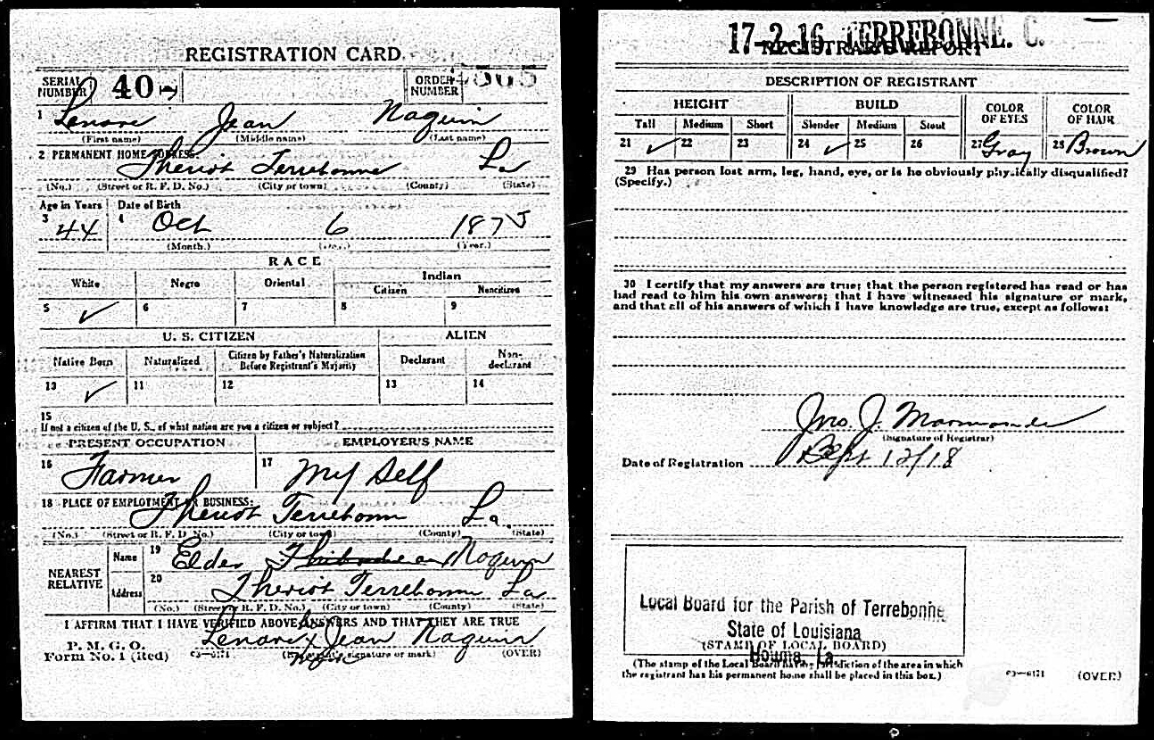 REGISTRATION CARD
SERIAL NUMBER 407 ORDER NUMBER
1 Lenore Jean Naquin
(First name) (Middle name) (Last name)
2 PERMANENT HOME ADDRESS:
Theriot Terrebonne La
(No.) (Street or R. F. D. No.) (City or town) (County) (State)
Age in Years Date of Birth
3 44 4 Oct 6 187
(Month.) (Year.)
RACE
White Negro Oriental Indian
Citizen Noncitizen
5 ✓ 6 7 8 9
U. S. CITIZEN ALIEN
Native Born Naturalized Citizen by Father's Naturalization Before Registrant's Majority Declarant Non-declarant
10 ✓ 11 12 13 14
15
If not a citizen of the U. S., of what nation are you a citizen or subject?
PRESENT OCCUPATION EMPLOYER'S NAME
16 Farmer 17 My Self
18 PLACE OF EMPLOYMENT OR BUSINESS:
Theriot Terrebonne La.
(No.) (Street or R. F. D. No.) (City or town) (County) (State)
NEAREST RELATIVE
Name 19 Elder Naquin
Address 20 Theriot Terrebonne La
(No.) (Street or R. F. D. No.) (City or town) (County) (State)
I AFFIRM THAT I HAVE VERIFIED ABOVE ANSWERS AND THAT THEY ARE TRUE
P. M. G. O.
Form No. 1 (Red) 03—6171 Lenore x Jean Naquin
(Registrant's signature or mark) (OVER)
17-2-16 TERREBONNE. C.
REGISTRAR'S REPORT
DESCRIPTION OF REGISTRANT
HEIGHT BUILD COLOR OF EYES COLOR OF HAIR
Tall Medium Short Slender Medium Stout
21 ✓ 22 23 24 ✓ 25 26 27 Gray 28 Brown
29 Has person lost arm, leg, hand, eye, or is he obviously physically disqualified?
(Specify.)
30 I certify that my answers are true; that the person registered has read or has
had read to him his own answers; that I have witnessed his signature or mark,
and that all of his answers of which I have knowledge are true, except as follows:
Jno. J. Marmande
(Signature of Registrar)
Date of Registration Sept 12/18
Local Board for the Parish of Terrebonne
State of Louisiana
(STAMP OF LOCAL BOARD)
Houma, La
(The stamp of the Local Board having jurisdiction of the area in which
the registrant has his permanent home shall be placed in this box.)
03—6171 (OVER)